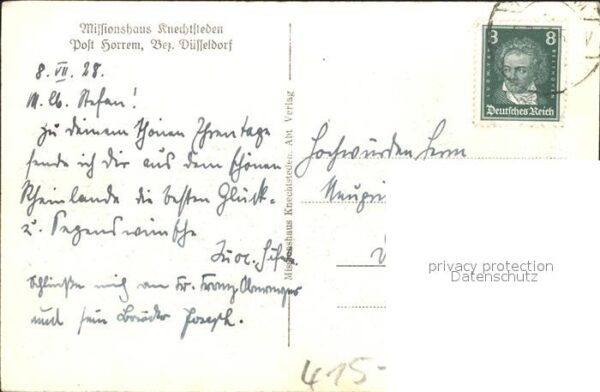 Missionshaus Knechtsteden
Post Horrem, Bez. Düsseldorf
8. VII. 28.
M. lb. Stefan!
Zu deinem schönen Ehrentage
sende ich dir aus dem schönen
Rheinlande die besten Glück-
u. Segenswünsche
Schließe mich an Fr. Franz
und sein Bruder Joseph.
Missionshaus Knechtsteden. Abt Verlag
8 8
LUDWIG V. BEETHOVEN
Deutsches Reich
Hochwürden Herrn
415-
privacy protection
Datenschutz